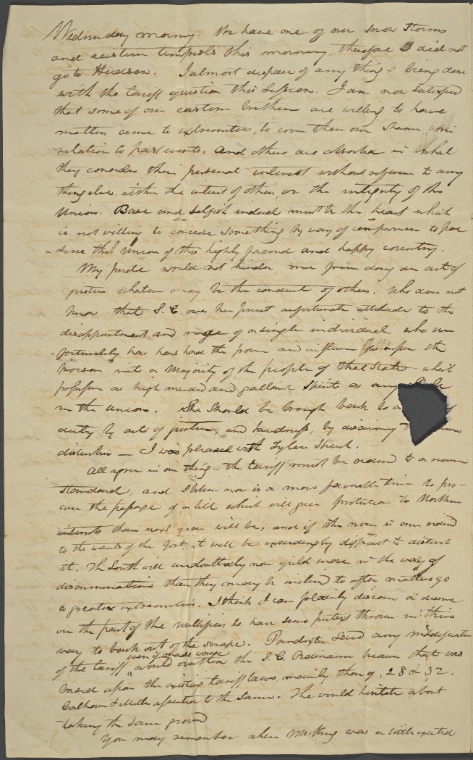 Wednesday morning. We have one of our Snow Storms
and eastern tempests this morning, therefore I did not
go to Hudson. I almost despair of any thing being done
with the tariff question this Session. I am now satisfied
that some of our eastern brethren are willing to have
matters come to extremities, to cover their own shame in
relation to past events, and others are absorbed in what
they consider their personal interest without regard to any
thing else, either the interest of others, or the integrity of the
Union. Base and selfish indeed must be the heart which
is not willing to concede something by way of compromise to pre
serve this Union of this highly favored and happy country.
My pride would not hinder me from doing an act of
justice whatever may be the conduct of others. Who does not
know that S.C. owes her present unfortunate attitude to the
disappointment and rage of a single individual who un
fortunately has had the power and influence to
a majority of the people of that State which
possesses as high minded and gallant spirits as any
in the union. She should be brought back to a
duty by acts of justice, and kindness, by
 — I was pleased with Tyler's Speech.
All agree in one thing — the tariff must be reduced to a revenue
standard, and I believe now is a more favorable time to pro-
cure the passage of a bill which will give protection to Northern
interests than next year will be, and if the revenue is once reduced
to the wants of the Govt. it will be exceedingly difficult to disturb
it. The South will undoubtedly now yield more in the way of
discriminations than they may be inclined to after matters go
to greater extremities. I think I can plainly discern a desire
on the part of the nullifiers to have some pretext thrown in their
way to back out of the scrape. Pendleton said any modification
of the tariff even if made worse would the S.C. Ordinance because that was
based upon the existing tariff laws, mainly those of 28 & 32.
Calhoun & Miller assented to the same. He would hesitate about
taking the same ground
You may remember when was